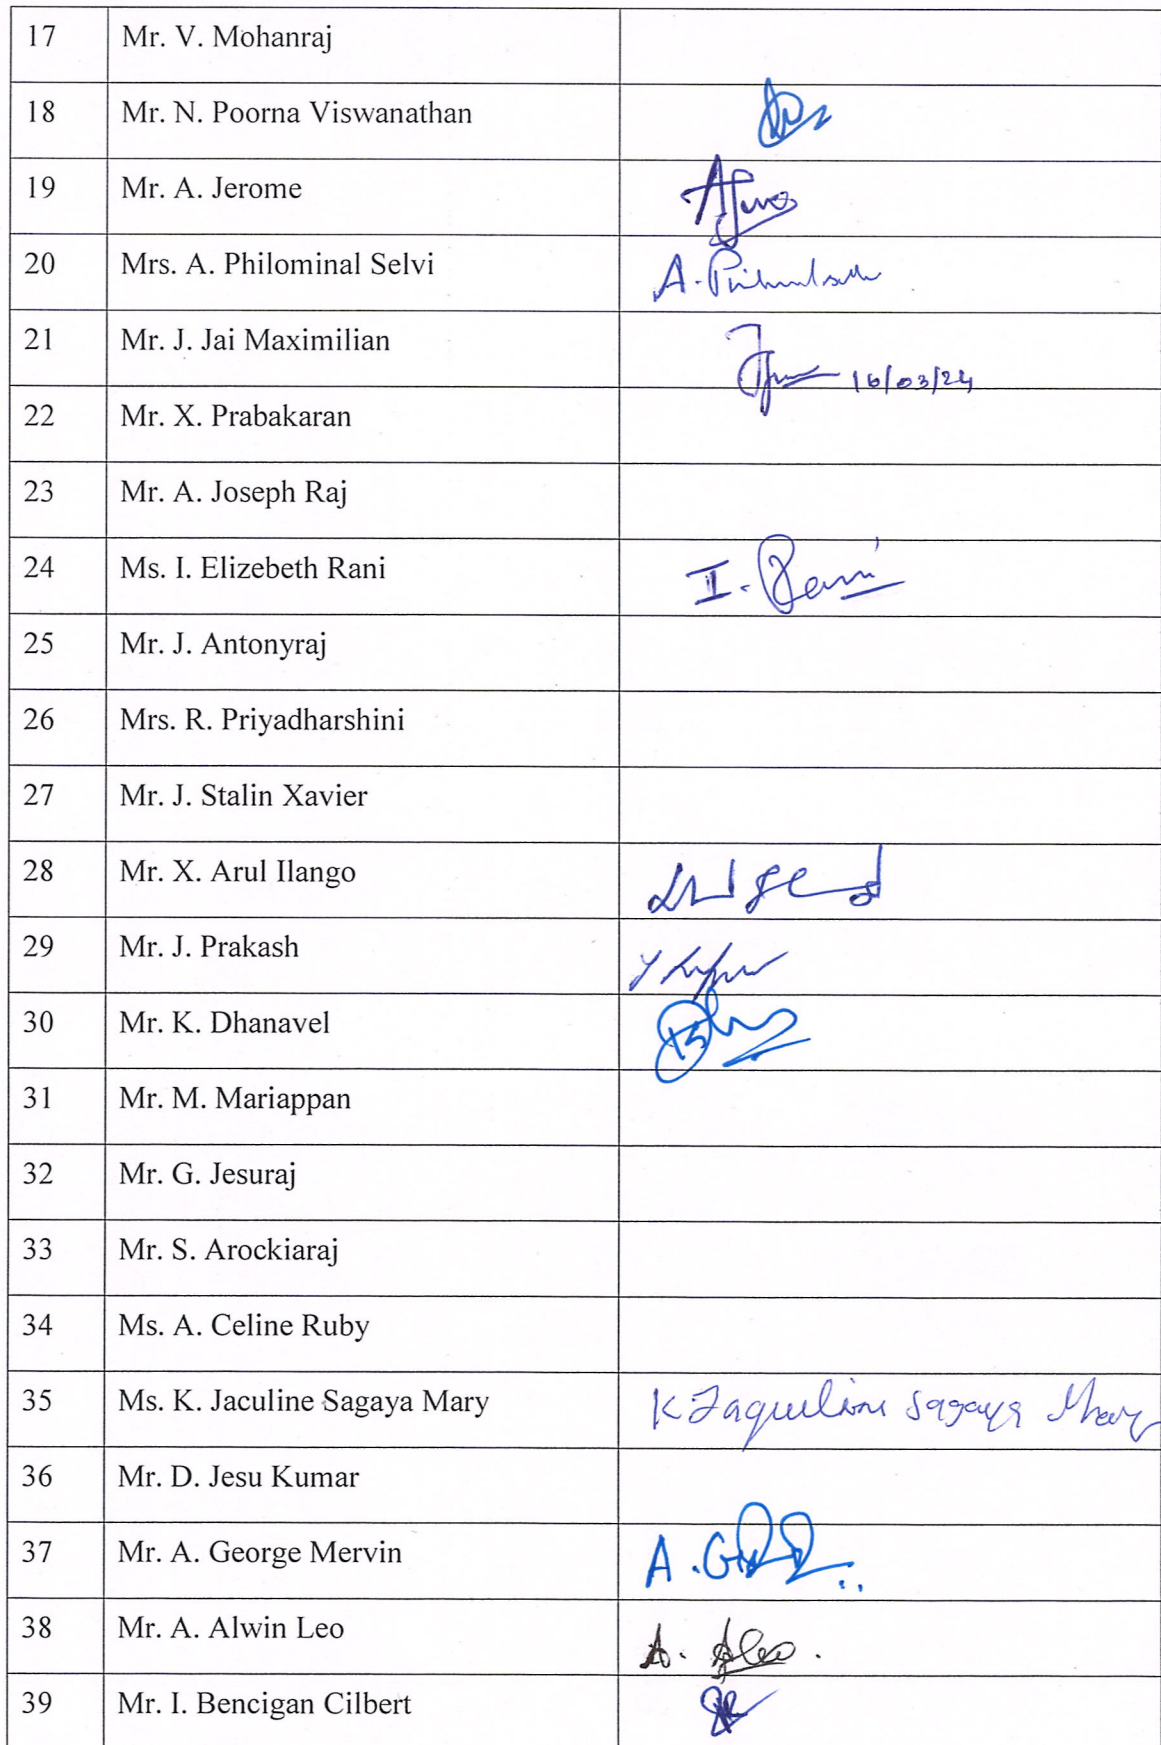 17 Mr. V. Mohanraj
18 Mr. N. Poorna Viswanathan
19 Mr. A. Jerome
20 Mrs. A. Philominal Selvi A.
21 Mr. J. Jai Maximilian 16/03/24
22 Mr. X. Prabakaran
23 Mr. A. Joseph Raj
24 Ms. I. Elizebeth Rani I. Rani
25 Mr. J. Antonyraj
26 Mrs. R. Priyadharshini
27 Mr. J. Stalin Xavier
28 Mr. X. Arul Ilango
29 Mr. J. Prakash
30 Mr. K. Dhanavel
31 Mr. M. Mariappan
32 Mr. G. Jesuraj
33 Mr. S. Arockiaraj
34 Ms. A. Celine Ruby
35 Ms. K. Jaculine Sagaya Mary K Jaqueline Sagaya Mary
36 Mr. D. Jesu Kumar
37 Mr. A. George Mervin A.
38 Mr. A. Alwin Leo A. Aleo.
39 Mr. I. Bencigan Cilbert